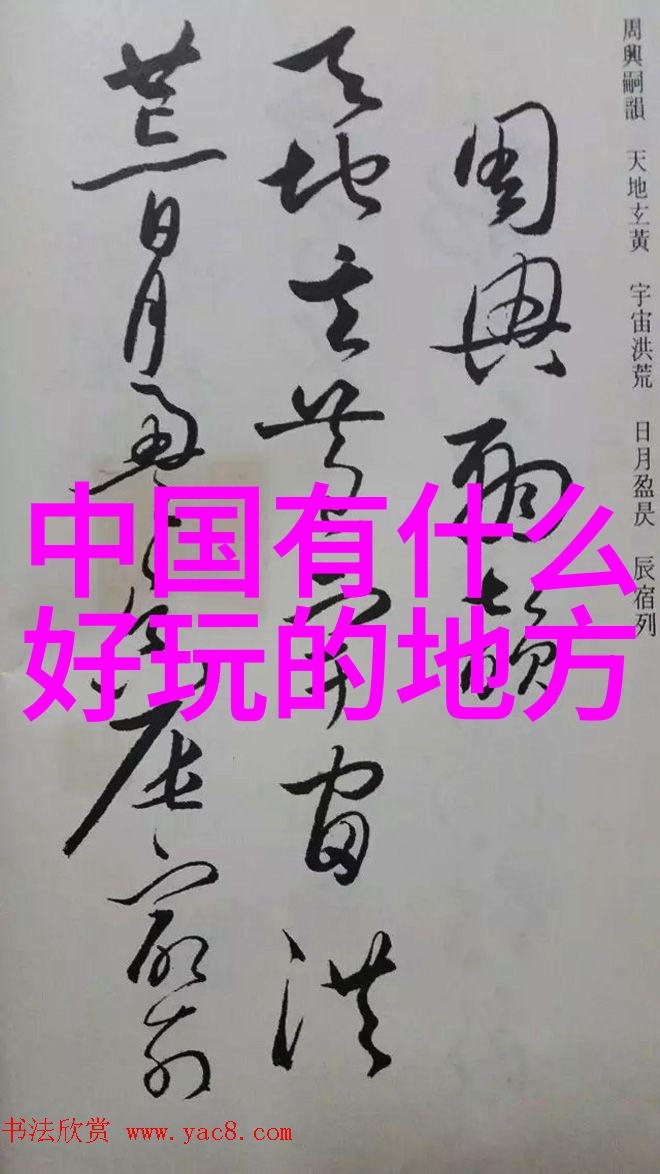 周興嗣韻 天地玄黃 宇宙洪荒 日月盈昃 辰宿列
周興嗣韻
天地玄黃宇宙洪
荒日月盈昃辰宿列
中国有什么
好玩的地方
书法欣赏 www.yac8.com